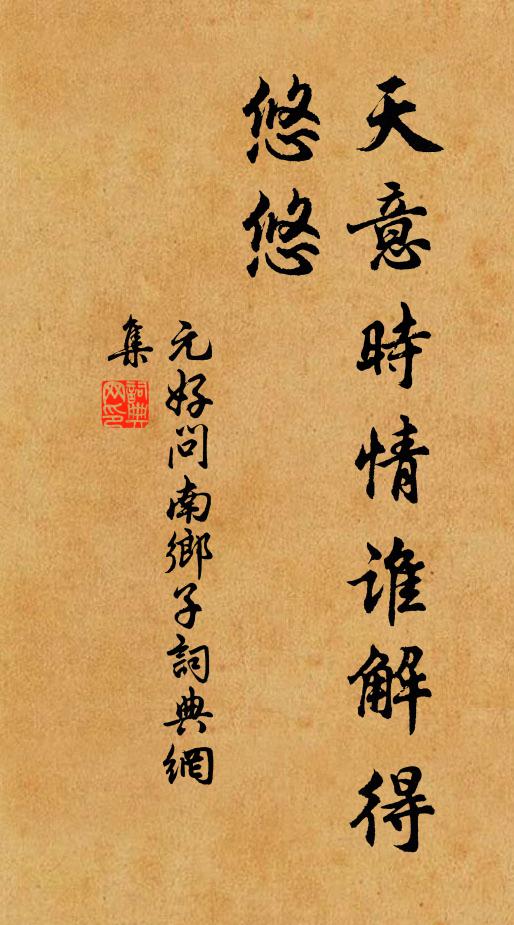 天意時情誰解得
悠悠
元好问南鄉子詞典網
集
詞典
网印